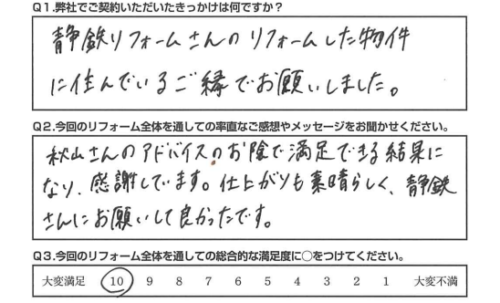 Q1.弊社でご契約いただいたきっかけは何ですか？
静鉄リフォームさんのリフォームした物件
に住んでいるご縁でお願いしました。
Q2.今回のリフォーム全体を通しての率直なご感想やメッセージをお聞かせください。
秋山さんのアドバイスのお陰で満足できる結果に
なり、感謝しています。仕上がりも素晴らしく、静鉄
さんにお願いして良かったです。
Q3.今回のリフォーム全体を通しての総合的な満足度に○をつけてください。
大変満足 10 9 8 7 6 5 4 3 2 1 大変不満